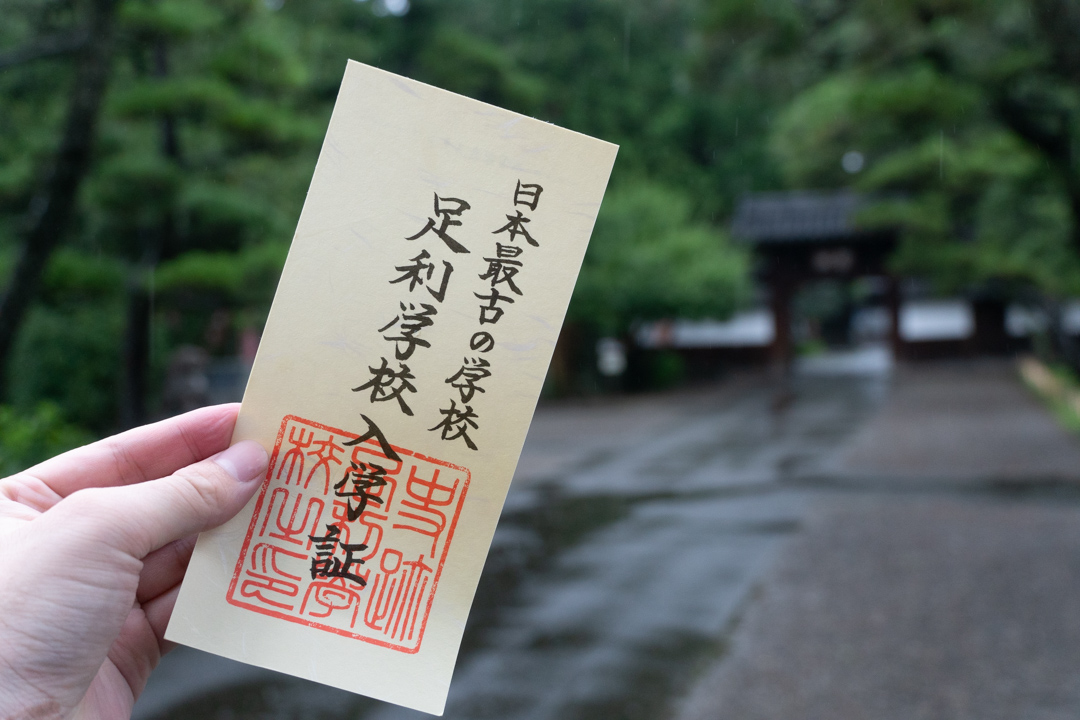 日本最古の学校
足利学校入学証
史跡足利学校之印